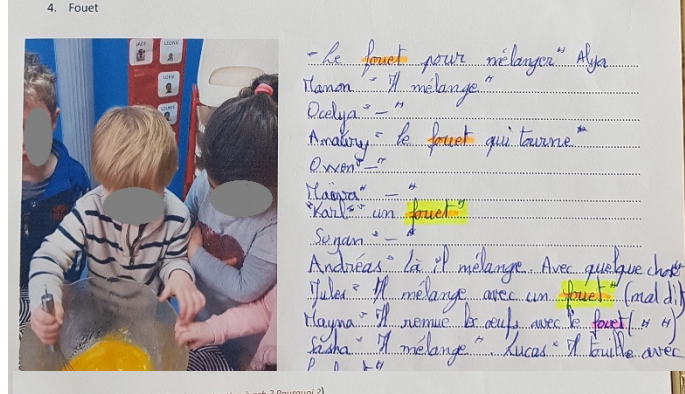 4. Fouet
JACK
LEONIE
LOEM
LOUANE
- Le fouet pour mélanger" Alya
Manon " Il mélange "
Ocelya " - "
Amaury " le fouet qui tourne "
Owen " - "
Maëva " - "
"Karl" " un fouet "
Soyan " - "
Andréas " là il mélange. Avec quelque chose
Jules " Il mélange avec un fouet " (mal dit)
Mayna " Il remue les oeufs avec le fouet ( " " )
Sasha " Il mélange ". Lucas " Il touille avec
? Pourquoi ?)